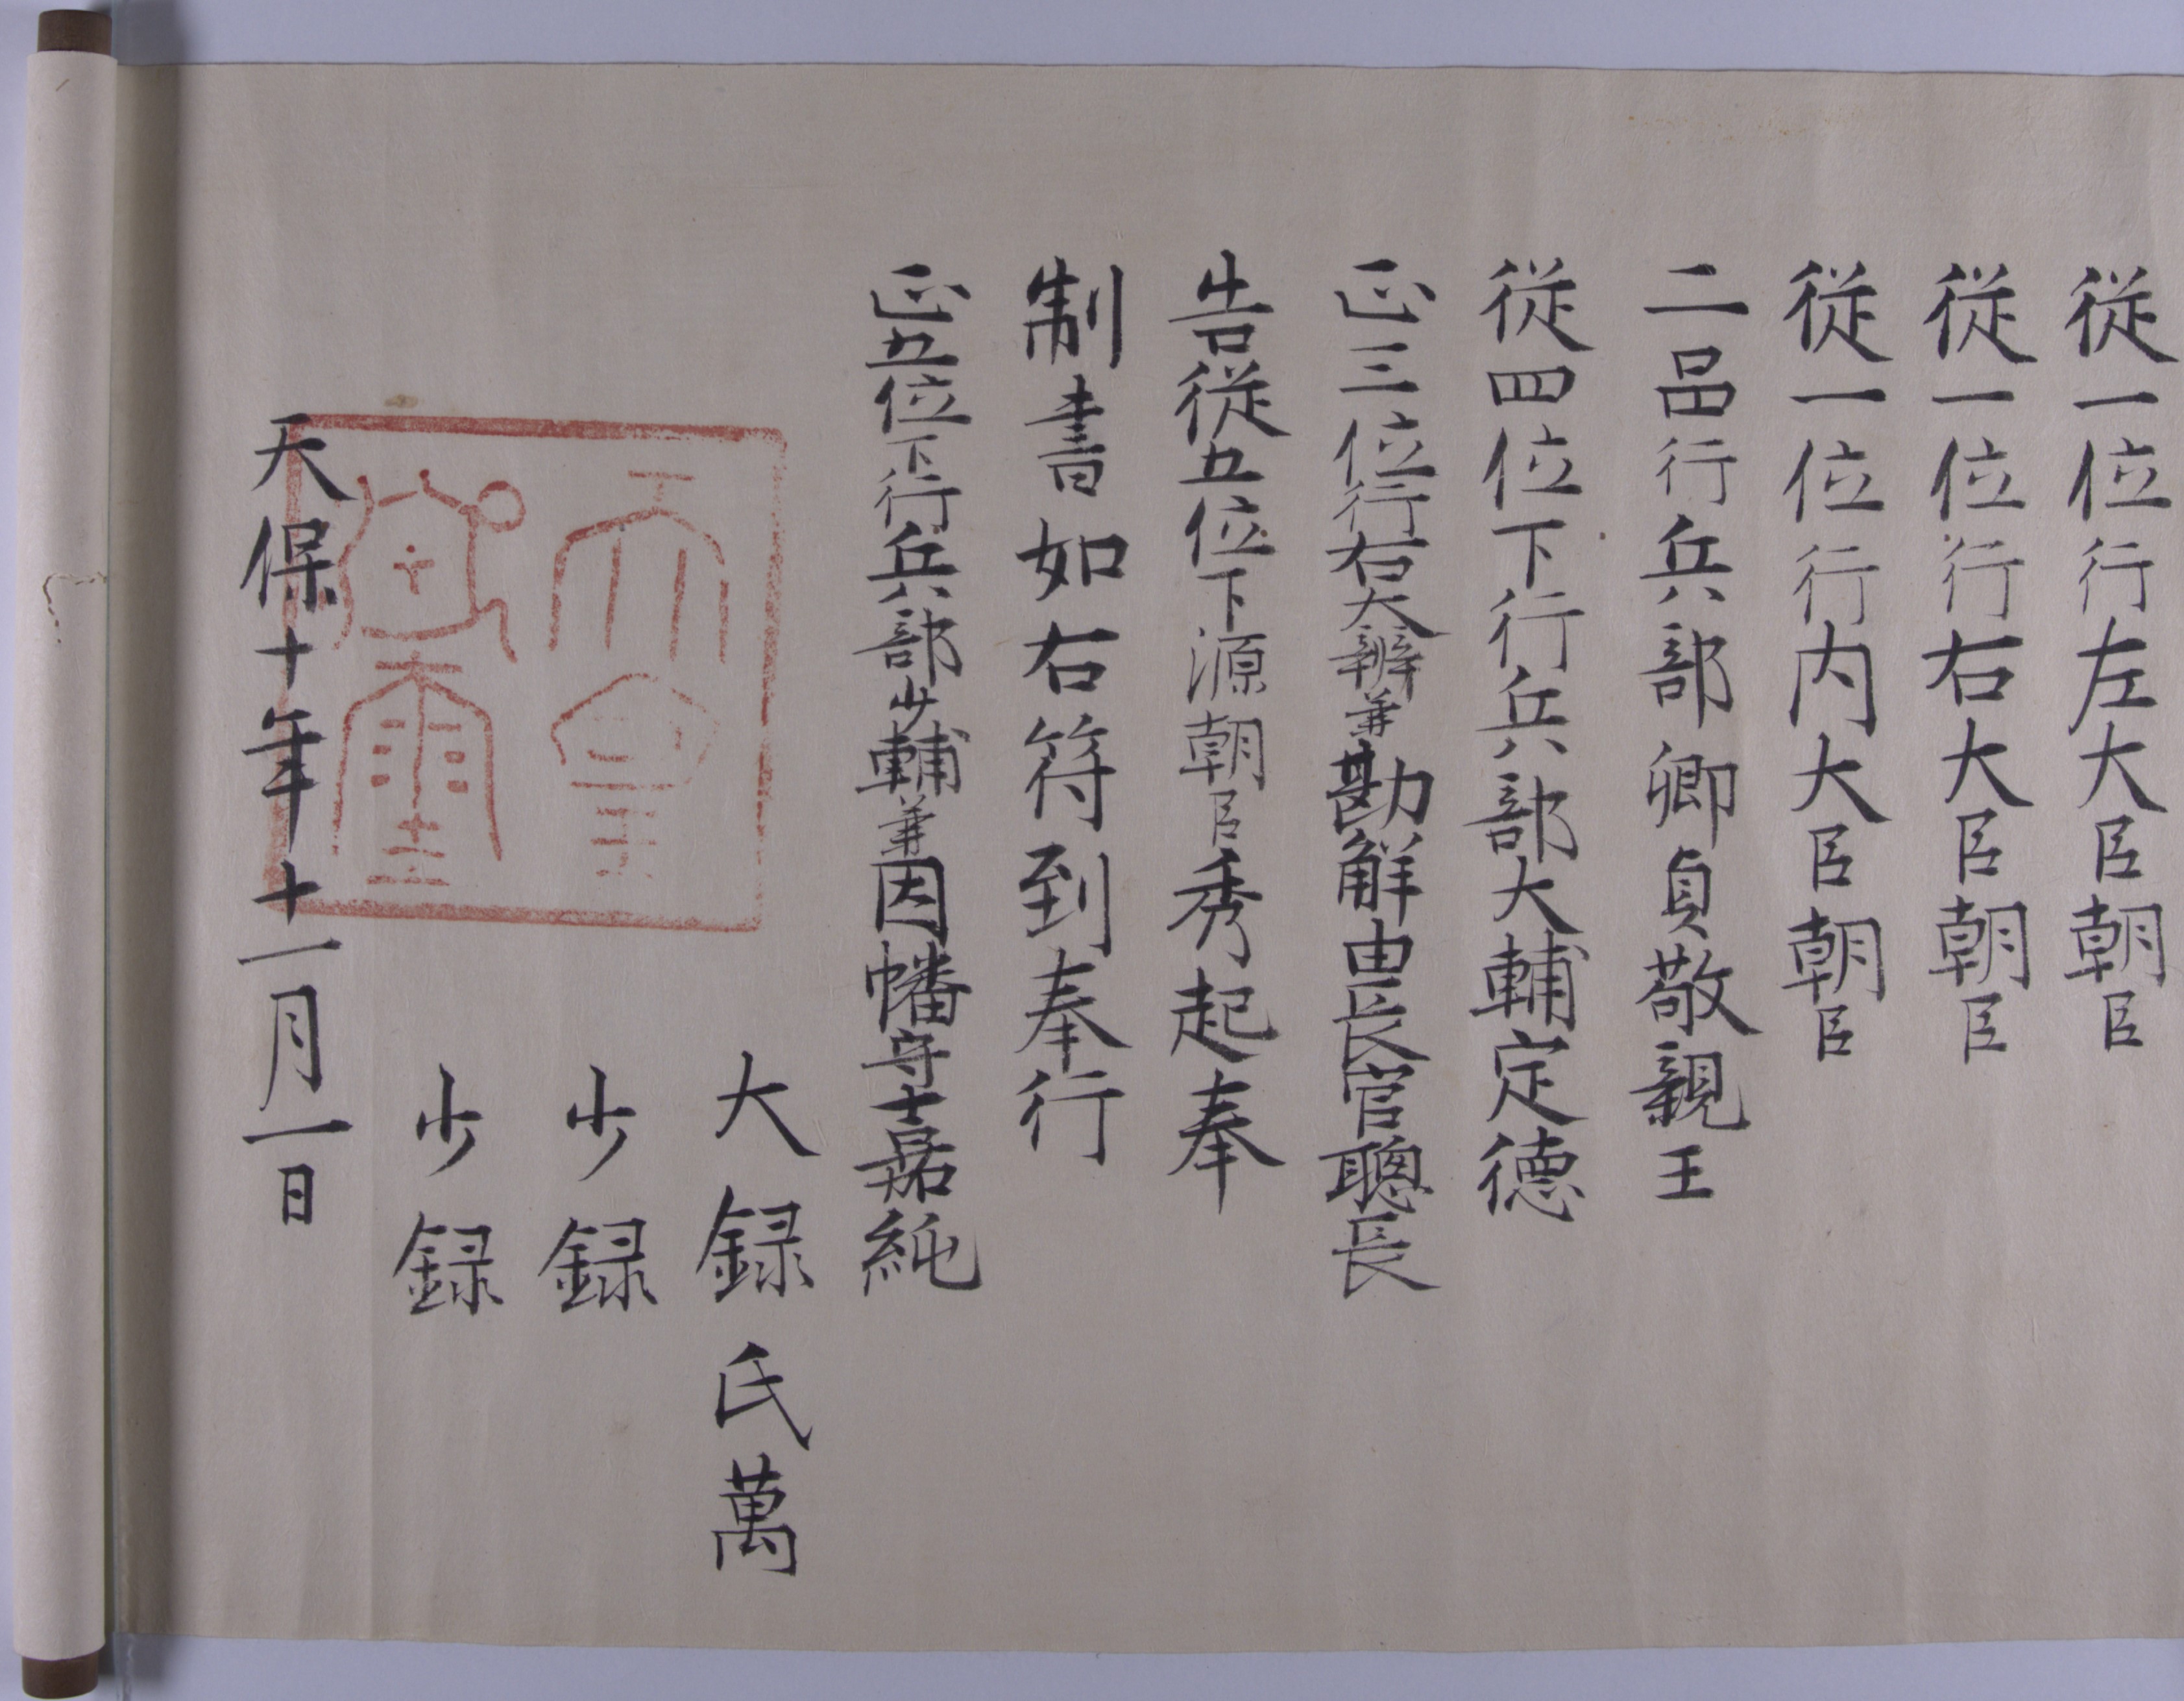 従一位行左大臣朝臣
従一位行右大臣朝臣
従一位行内大臣朝臣
二品行兵部卿貞敬親王
従四位下行兵部大輔定德
正三位行右大辨兼勘解由長官聰長
告従五位下源朝臣秀起奉
制書如右符到奉行
正五位下行兵部少輔兼因幡守士嘉純
大録氏萬
少録
少録
天皇御璽
天保十年十一月一日